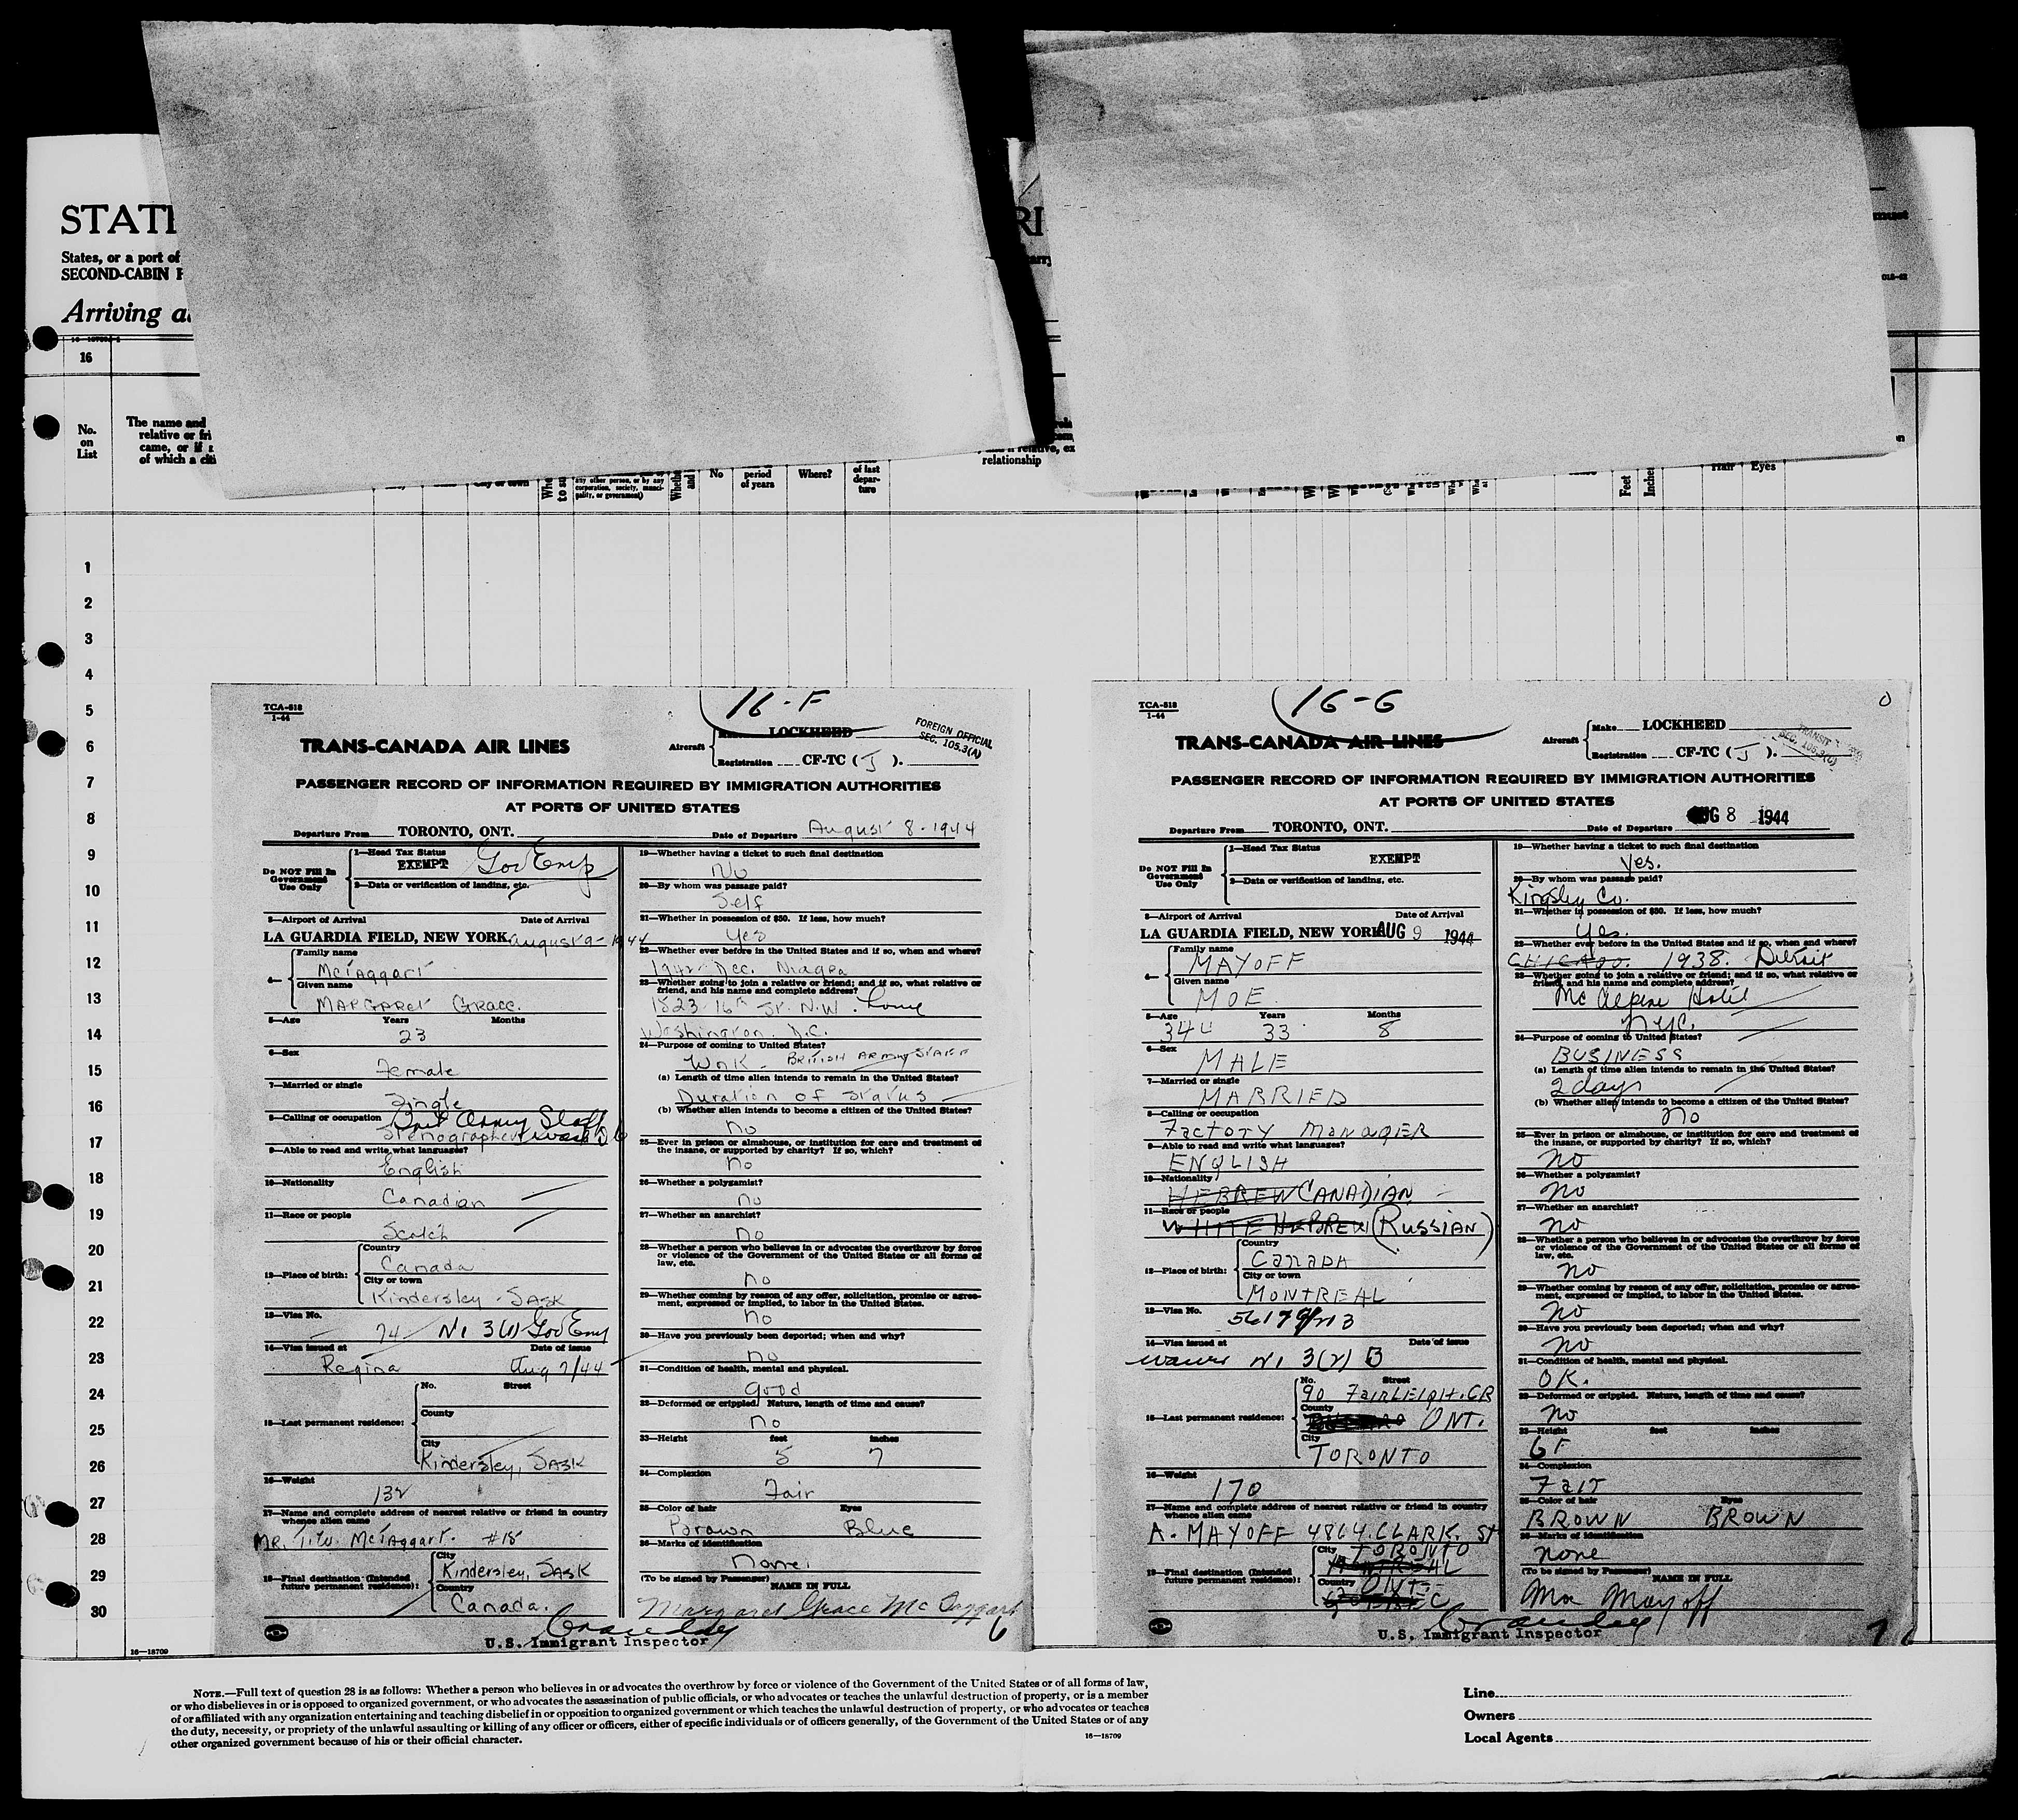 STATE
RI
States, or a port of
SECOND-CABIN P
Arriving at
16
No.
on
List
The name and
relative or fri
came, or if
of which a citi
any other person, or by any
corporation, society, munici-
pality, or government)
No
period
of years
Where?
of last
depar-
ture
relationship
Feet
Inches
Hair
Eyes
1
2
3
4
5
6
7
8
9
10
11
12
13
14
15
16
17
18
19
20
21
22
23
24
25
26
27
28
29
30
16—18709
TCA-518
1-44
16-F
TRANS-CANADA AIR LINES
Aircraft
Make LOCKHEED
Registration CF-TC ( J ).
FOREIGN OFFICIAL
SEC. 105.3(A)
PASSENGER RECORD OF INFORMATION REQUIRED BY IMMIGRATION AUTHORITIES
AT PORTS OF UNITED STATES
Departure From TORONTO, ONT.
Date of Departure August 8-1944
Do NOT Fill In
Government
Use Only
1—Head Tax Status
EXEMPT Gov Emp
2—Data or verification of landing, etc.
3—Airport of Arrival Date of Arrival
LA GUARDIA FIELD, NEW YORK August 9-1944
4—
Family name
McTaggart
Given name
Margaret Grace.
5—Age Years Months
23
6—Sex
Female
7—Married or single
Single
8—Calling or occupation Brit Army Staff
Stenographer Wash DC
9—Able to read and write what languages?
English
10—Nationality
Canadian
11—Race or people
Scotch
12—Place of birth:
Country
Canada
City or town
Kindersley - Sask
13—Visa No.
74 N1 3(1) Gov Emp
14—Visa issued at Date of issue
Regina Aug 7/44
15—Last permanent residence:
No. Street
County
City
Kindersley, Sask
16—Weight
132
17—Name and complete address of nearest relative or friend in country
whence alien came
Mr. T.W. McTaggart. #18
18—Final destination (Intended
future permanent residence):
City
Kindersley, Sask
Country
Canada.
19—Whether having a ticket to such final destination
No
20—By whom was passage paid?
Self
21—Whether in possession of $50. If less, how much?
Yes
22—Whether ever before in the United States and if so, when and where?
1942 - Dec. Niagra
23—Whether going to join a relative or friend; and if so, what relative or
friend, and his name and complete address?
1523 16th St. N.W. home
Washington. D.C.
24—Purpose of coming to United States?
Work - British Army Staff
(a) Length of time alien intends to remain in the United States?
Duration of status
(b) Whether alien intends to become a citizen of the United States?
No
25—Ever in prison or almshouse, or institution for care and treatment of
the insane, or supported by charity? If so, which?
no
26—Whether a polygamist?
no
27—Whether an anarchist?
no
28—Whether a person who believes in or advocates the overthrow by force
or violence of the Government of the United States or all forms of
law, etc.
no
29—Whether coming by reason of any offer, solicitation, promise or agree-
ment, expressed or implied, to labor in the United States.
no
30—Have you previously been deported; when and why?
no
31—Condition of health, mental and physical.
good
32—Deformed or crippled. Nature, length of time and cause?
no
33—Height feet inches
5 7
34—Complexion
Fair
35—Color of hair Eyes
Brown Blue
36—Marks of identification
none.
(To be signed by Passenger)
NAME IN FULL
Margaret Grace McTaggart
6
U.S. Immigrant Inspector
TCA-518
1-44
16-G
0
TRANS-CANADA AIR LINES
Aircraft
Make LOCKHEED
Registration CF-TC ( J ).
TRANSIT
PASSENGER RECORD OF INFORMATION REQUIRED BY IMMIGRATION AUTHORITIES
AT PORTS OF UNITED STATES
Departure From TORONTO, ONT.
Date of Departure AUG 8 1944
Do NOT Fill In
Government
Use Only
1—Head Tax Status
EXEMPT
2—Data or verification of landing, etc.
3—Airport of Arrival Date of Arrival
LA GUARDIA FIELD, NEW YORK AUG 9 1944
4—
Family name
MAYOFF
Given name
MOE
5—Age Years Months
34 33 8
6—Sex
MALE
7—Married or single
MARRIED
8—Calling or occupation
Factory Manager
9—Able to read and write what languages?
ENGLISH
10—Nationality
HEBREW CANADIAN
11—Race or people
WHITE HEBREW (RUSSIAN)
12—Place of birth:
Country
Canada
City or town
MONTREAL
13—Visa No.
14—Visa issued at Date of issue
waiver N1 3(2) B
15—Last permanent residence:
No. Street
90 Fairleigh. CR
County
ONT.
City
TORONTO
16—Weight
170
17—Name and complete address of nearest relative or friend in country
whence alien came
A. MAYOFF 4864. CLARK. St
18—Final destination (Intended
future permanent residence):
City TORONTO
MONTREAL
Country ONT.
QUEBEC
19—Whether having a ticket to such final destination
Yes.
20—By whom was passage paid?
Kingsley Co.
21—Whether in possession of $50. If less, how much?
Yes.
22—Whether ever before in the United States and if so, when and where?
CHICAGO. 1938. Detroit
23—Whether going to join a relative or friend; and if so, what relative or
friend, and his name and complete address?
Mc Alpine Hotel
NYC.
24—Purpose of coming to United States?
BUSINESS
(a) Length of time alien intends to remain in the United States?
2 days
(b) Whether alien intends to become a citizen of the United States?
No
25—Ever in prison or almshouse, or institution for care and treatment of
the insane, or supported by charity? If so, which?
no
26—Whether a polygamist?
no
27—Whether an anarchist?
no
28—Whether a person who believes in or advocates the overthrow by force
or violence of the Government of the United States or all forms of
law, etc.
no
29—Whether coming by reason of any offer, solicitation, promise or agree-
ment, expressed or implied, to labor in the United States.
no
30—Have you previously been deported; when and why?
no
31—Condition of health, mental and physical.
OK.
32—Deformed or crippled. Nature, length of time and cause?
no
33—Height feet inches
6 F
34—Complexion
Fair
35—Color of hair Eyes
BROWN BROWN
36—Marks of identification
none
(To be signed by Passenger)
NAME IN FULL
Moe Mayoff
7
U.S. Immigrant Inspector
NOTE.—Full text of question 28 is as follows: Whether a person who believes in or advocates the overthrow by force or violence of the Government of the United States or of all forms of law,
or who disbelieves in or is opposed to organized government, or who advocates the assassination of public officials, or who advocates or teaches the unlawful destruction of property, or is a member
of or affiliated with any organization entertaining and teaching disbelief in or opposition to organized government or which teaches the unlawful destruction of property, or who advocates or teaches
the duty, necessity, or propriety of the unlawful assaulting or killing of any officer or officers, either of specific individuals or of officers generally, of the Government of the United States or of any
other organized government because of his or their official character.
16—18709
Line
Owners
Local Agents